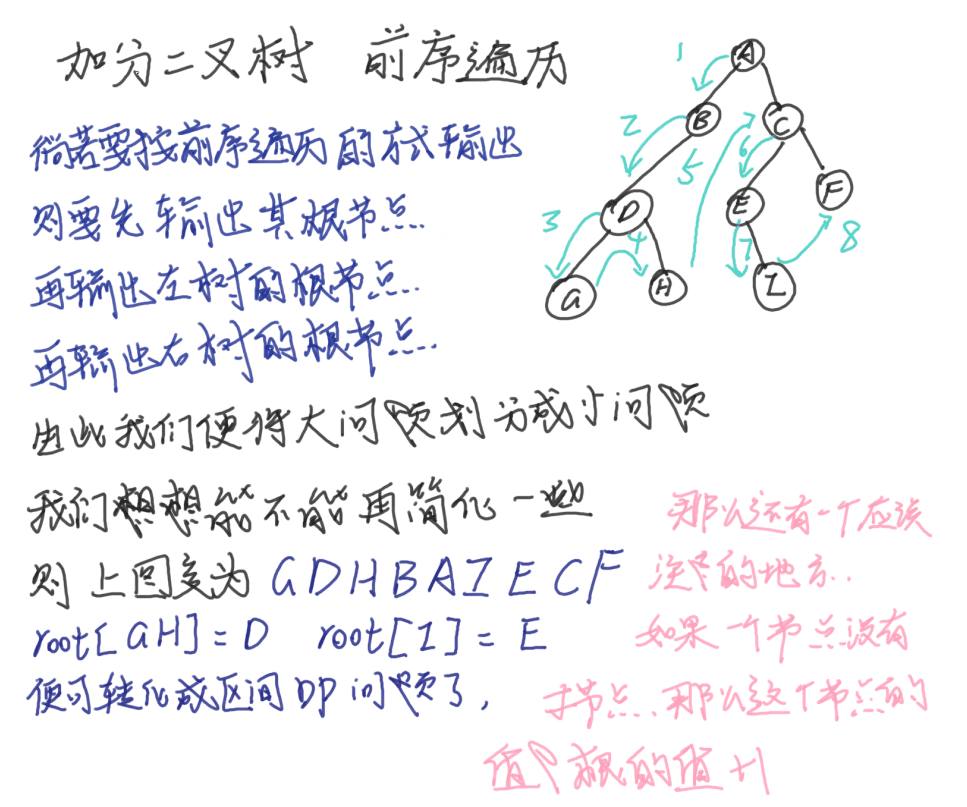 加分二叉树 前序遍历
倘若要按前序遍历的方式输出
则要先输出其根节点...
再输出左树的根节点...
再输出右树的根节点...
由此我们便将大问题划分成小问题
我们想想能不能再简化一些
则上图变为 GDHBAIECF
root[GH]=D root[I]=E
便可转化成区间DP问题了,
那么还有一个应该
注意的地方..
如果一个节点没有
子节点..那么这个节点的
值 根的值+1
A
1
B
2
C
5
6
D
E
F
3
4
7
8
G
H
I